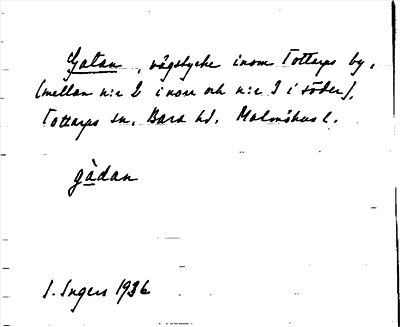 Gatan, vägstycke inom Tottarps by,
(mellan n:r 2 i norr och n:r 3 i söder),
Tottarps sn. Bara hd. Malmöhus l.
gàdan
S. Ingers 1936